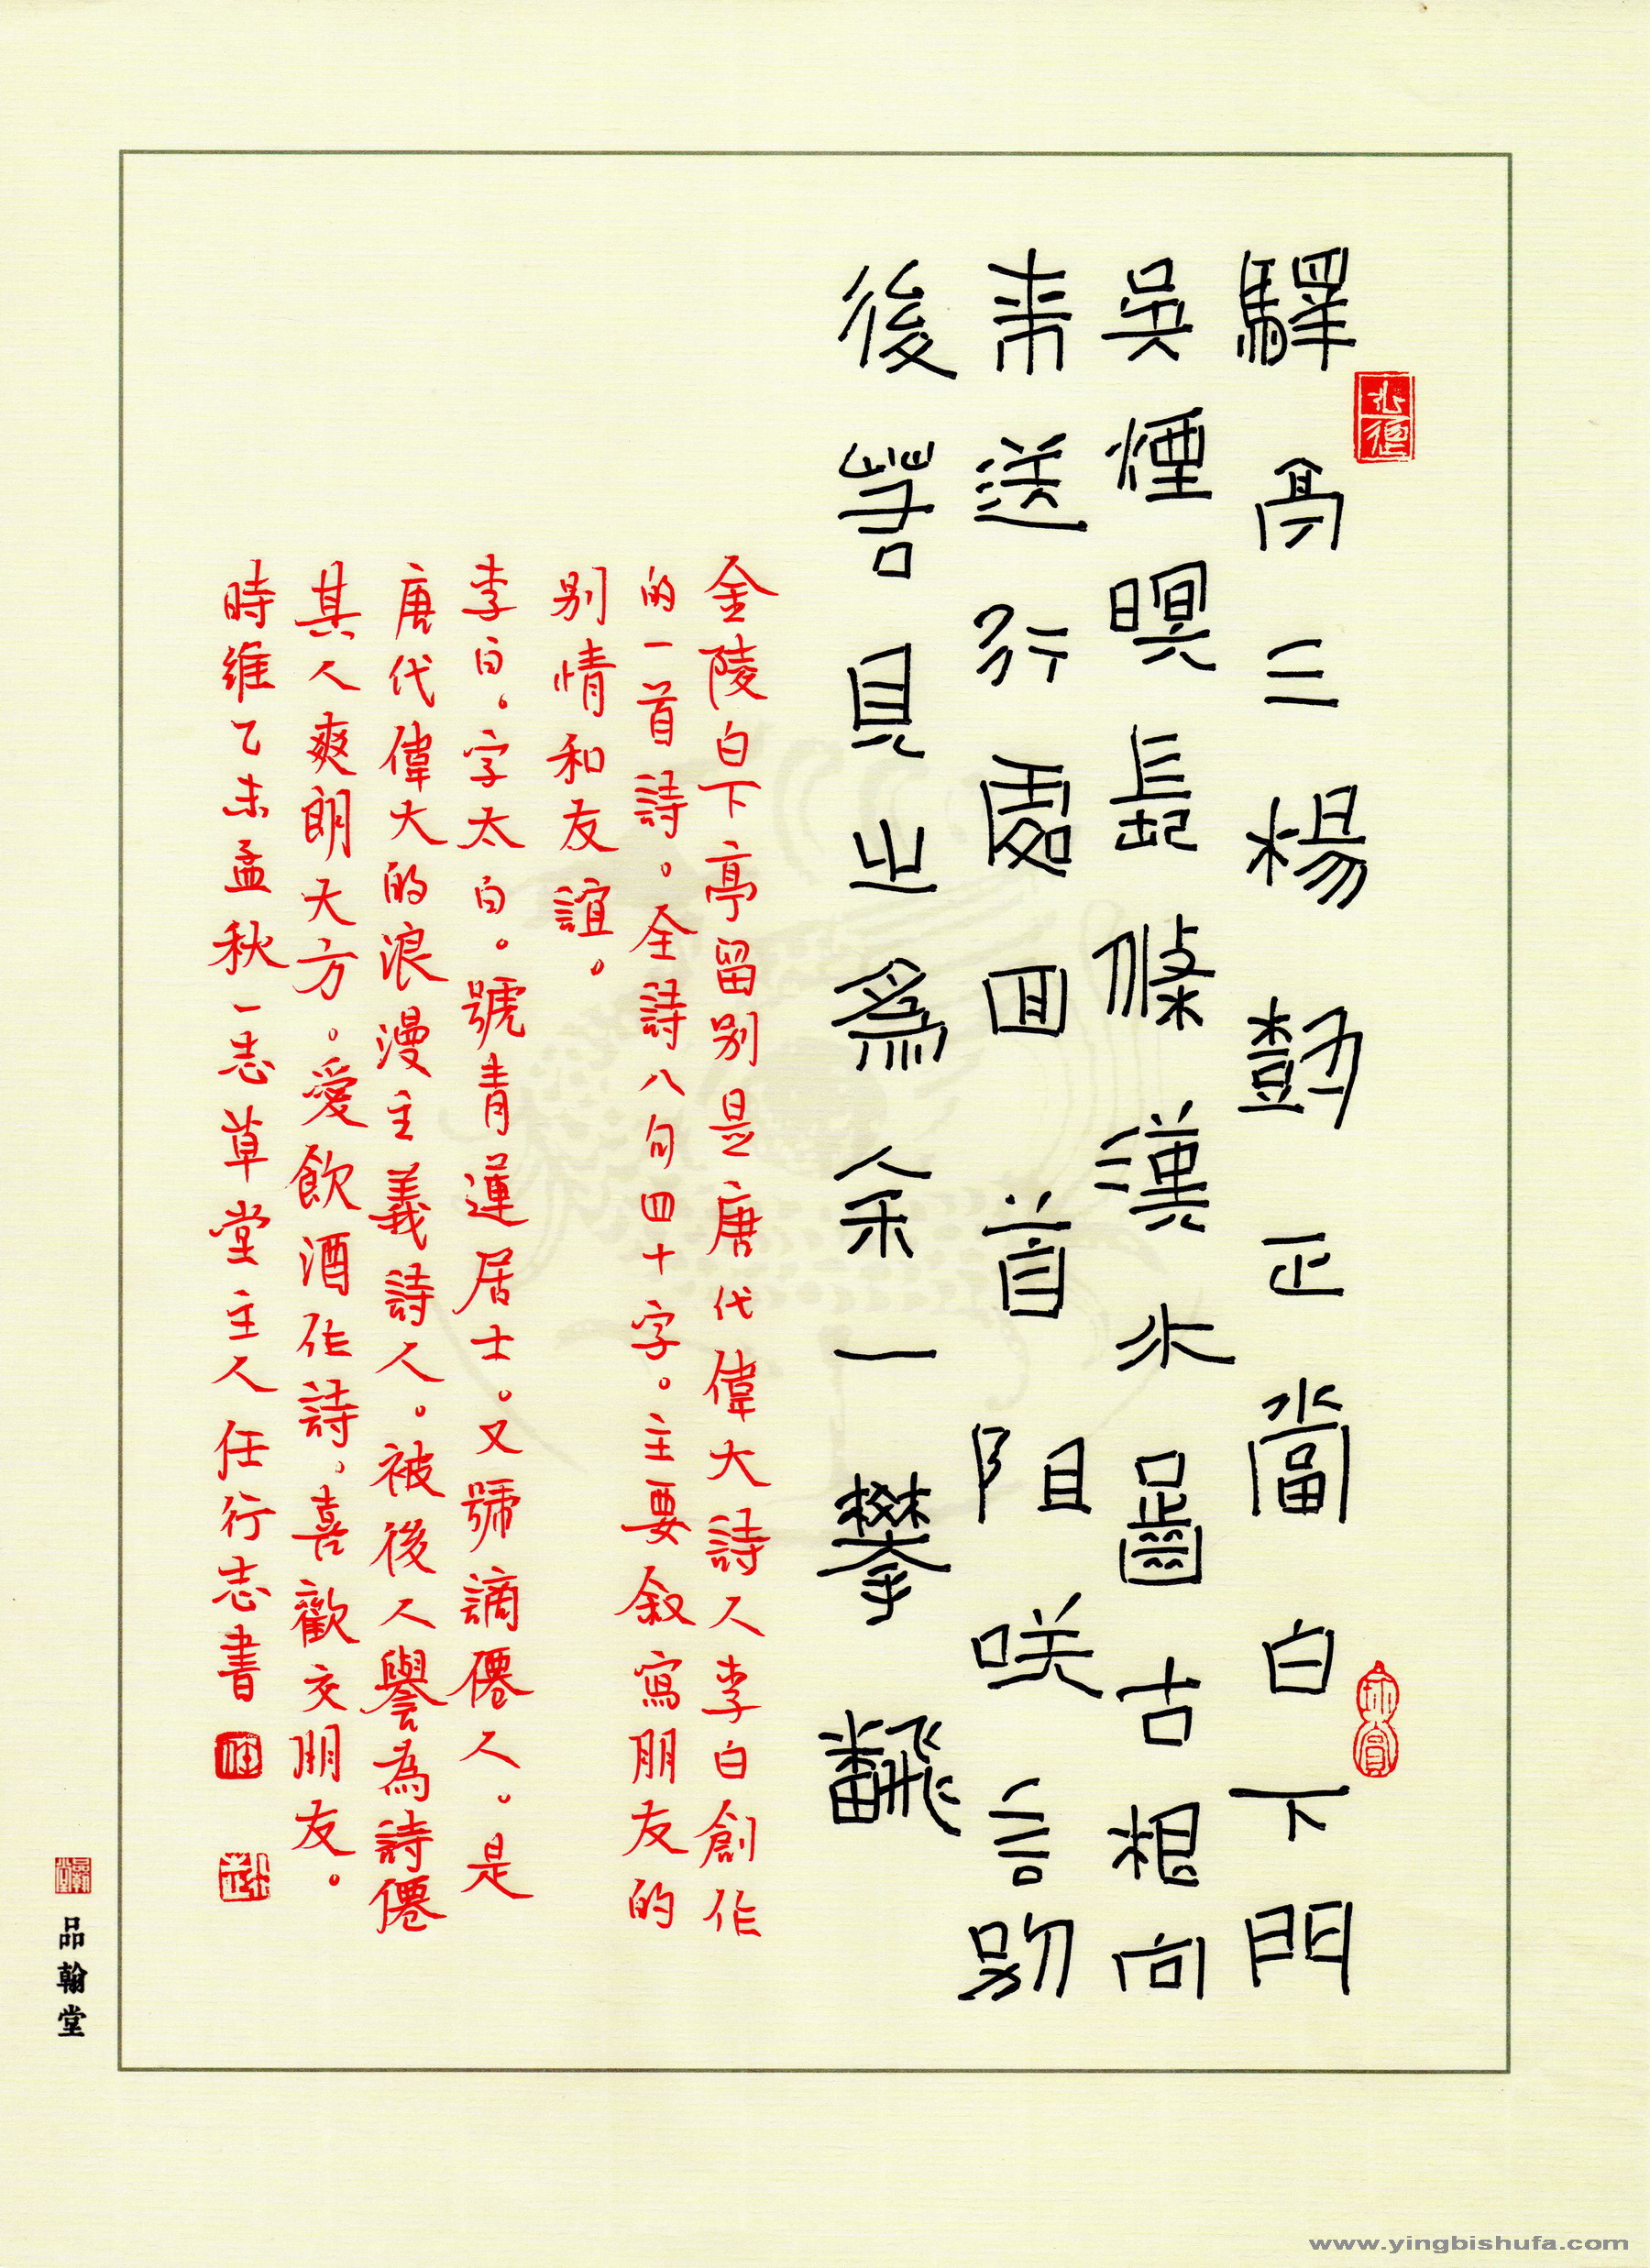 驛亭三楊樹正當白下門
吳煙暝長條漢水齧古根向
來送行處回首阻咲言別
後若見之爲余一攀飜
金陵白下亭留别是唐代偉大詩人李白創作
的一首詩。全詩八句四十字。主要叙寫朋友的
别情和友誼。
李白。字太白。號青蓮居士。又號謫僊人。是
唐代偉大的浪漫主義詩人。被後人譽為詩僊
其人爽朗大方。愛飲酒作詩。喜歡交朋友。
時維乙未孟秋一志草堂主人任行志書
品翰堂
www.yingbishufa.com